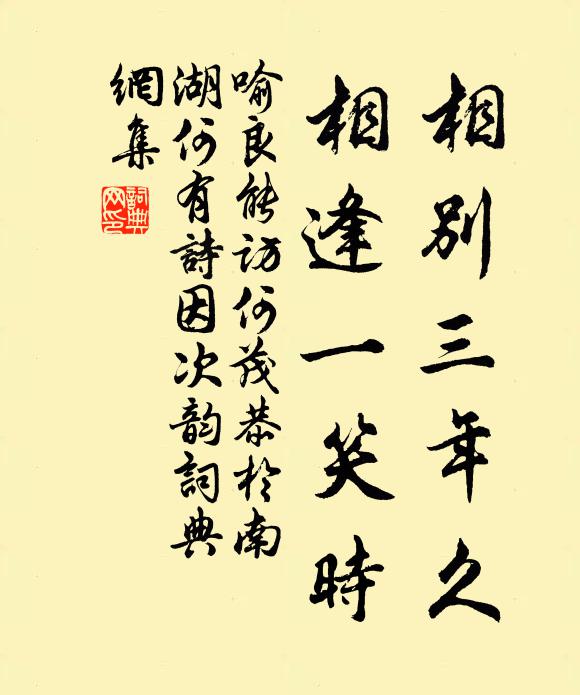 相別三年久
相逢一笑時
喻良能訪何茂恭於南
湖何有詩因次韵詞典
網集
詞典
网印